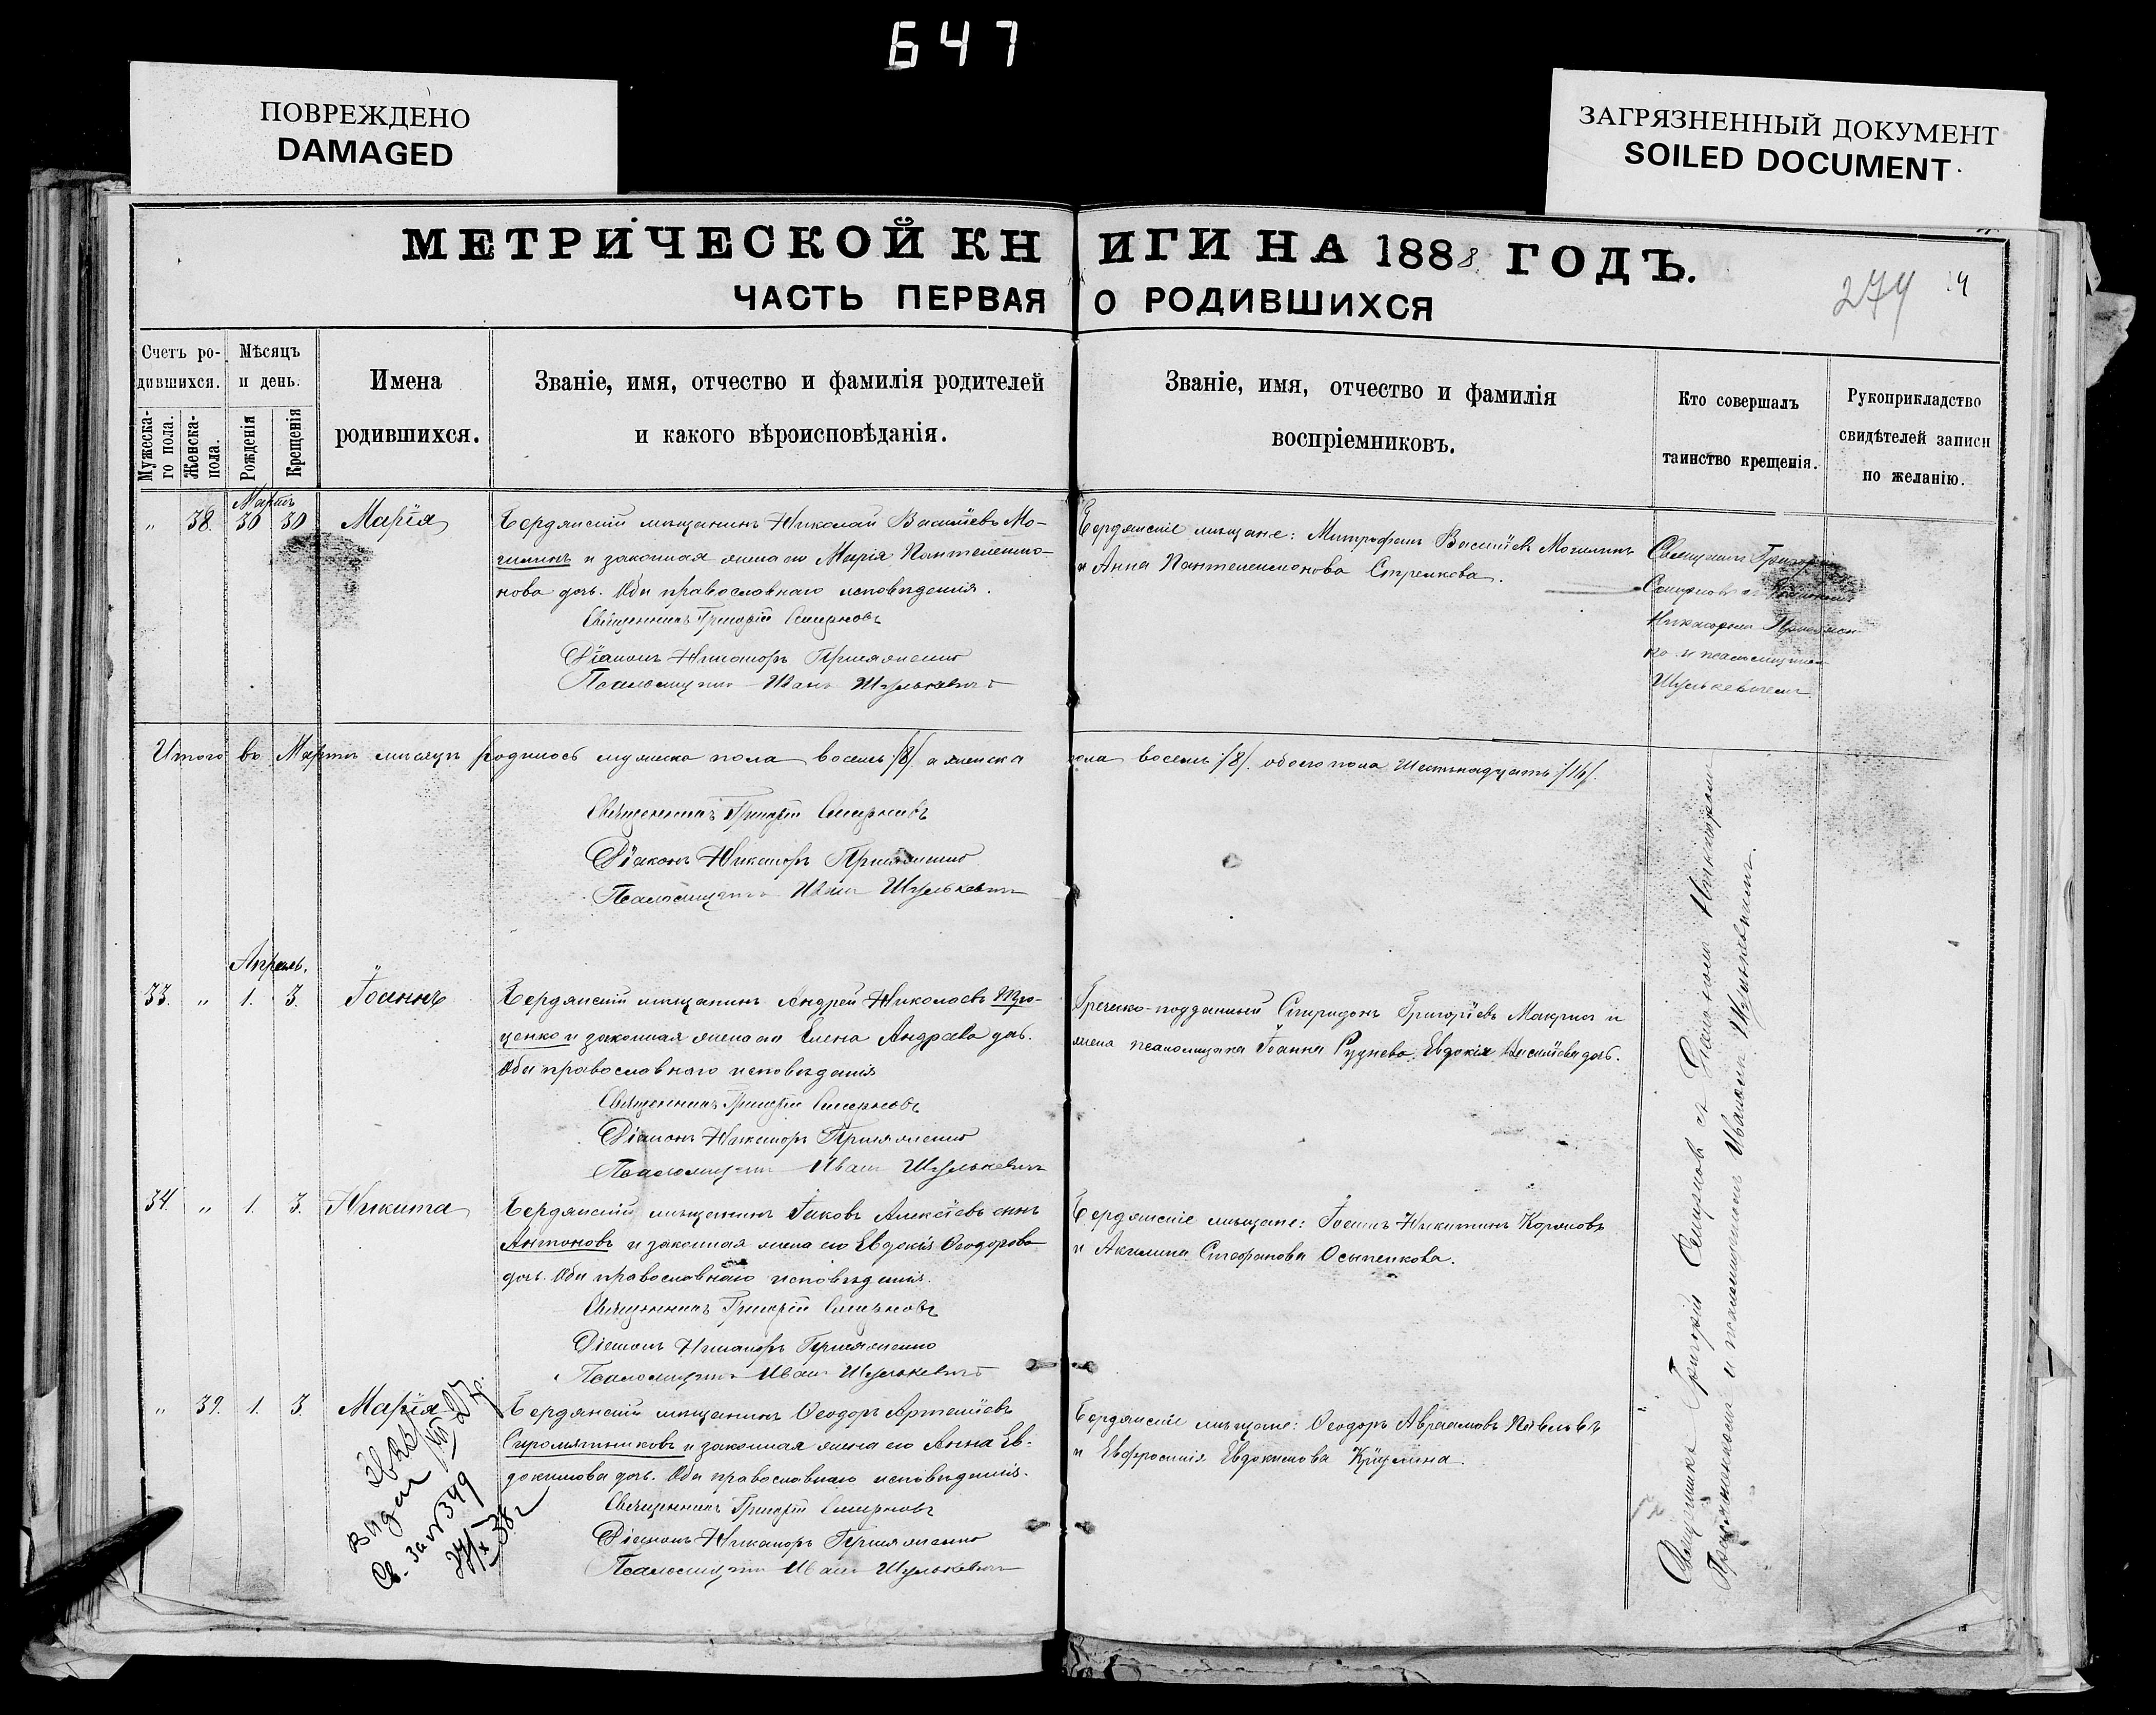 647
ПОВРЕЖДЕНО
DAMAGED
ЗАГРЯЗНЕННЫЙ ДОКУМЕНТ
SOILED DOCUMENT
МЕТРИЧЕСКОЙ КНИГИ НА 1888 ГОДЪ.
ЧАСТЬ ПЕРВАЯ О РОДИВШИХСЯ
274
Счетъ ро-
дившихся.
Мужеска-
го пола.
Женска-
пола.
Мѣсяцъ
и день.
Рожденія
Крещенія
Имена
родившихся.
Званіе, имя, отчество и фамилія родителей
и какого вѣроисповѣданія.
Званіе, имя, отчество и фамилія
воспріемниковъ.
Кто совершалъ
таинство крещенія.
Рукоприкладство
свидѣтелей записи
по желанію.
Мартъ
„ 38. 30 30 Марія
Бердянскій мѣщанинъ Николай Васильевъ Мо-
гилинъ и законная жена его Марія Пантелеимо-
нова дочь. Оба православнаго исповѣданія.
Священникъ Григорій Смирновъ
Діаконъ Никаноръ Присяжненко
Псаломщикъ Иванъ Шулькевичъ
Бердянскіе мѣщане: Митрофанъ Васильевъ Могилинъ
и Анна Пантелеимонова Стрелкова.
Священникъ Григорій
Смирновъ съ Діакономъ
Никаноромъ Присяжнен-
ко и псаломщикомъ
Шулькевичемъ
Итого въ Мартѣ мѣсяцѣ родилось мужеска пола восемь /8/ а женска пола восемь /8/. обоего пола шестьнадцать /16/.
Священникъ Григорій Смирновъ
Діаконъ Никаноръ Присяжненко
Псаломщикъ Иванъ Шулькевичъ
Апрель.
33. „ 1. 3. Іоаннъ
Бердянскій мѣщанинъ Андрей Николаевъ
ценко и законная жена его Елена Андреева дочь.
Оба православнаго исповѣданія
Священникъ Григорій Смирновъ
Діаконъ Никаноръ Присяжненко
Псаломщикъ Иванъ Шулькевичъ
Греческо-подданный Спиридонъ Григорьевъ Макрисъ и
жена псаломщика Іоанна Руднева Евдокія Васильева дочь.
34. „ 1. 3. Никита
Бердянскій мѣщанинъ Іаковъ Алексѣевъ сынъ
Антоновъ и законная жена его Евдокія Ѳеодорова
дочь. Оба православнаго исповѣданія.
Священникъ Григорій Смирновъ
Діаконъ Никаноръ Присяжненко
Псаломщикъ Иванъ Шулькевичъ
Бердянскіе мѣщане: Іоаннъ Никитинъ
и Акилина Стефанова Осыпенкова.
„ 39. 1. 3. Марія
Бердянскій мѣщанинъ Ѳеодоръ Артемьевъ
Сыромятниковъ и законная жена его Анна Ев-
докимова дочь. Оба православнаго исповѣданія.
Священникъ Григорій Смирновъ
Діаконъ Никаноръ Присяжненко
Псаломщикъ Иванъ Шулькевичъ
Бердянскіе мѣщане: Ѳеодоръ Авраамовъ
и Евфросинія Евдокимова
выдан
Св. за № 349
27/X 38 г
Священникъ Григорій Смирновъ съ Діакономъ Никаноромъ
Присяжненкомъ и псаломщикомъ Иваномъ Шулькевичемъ.